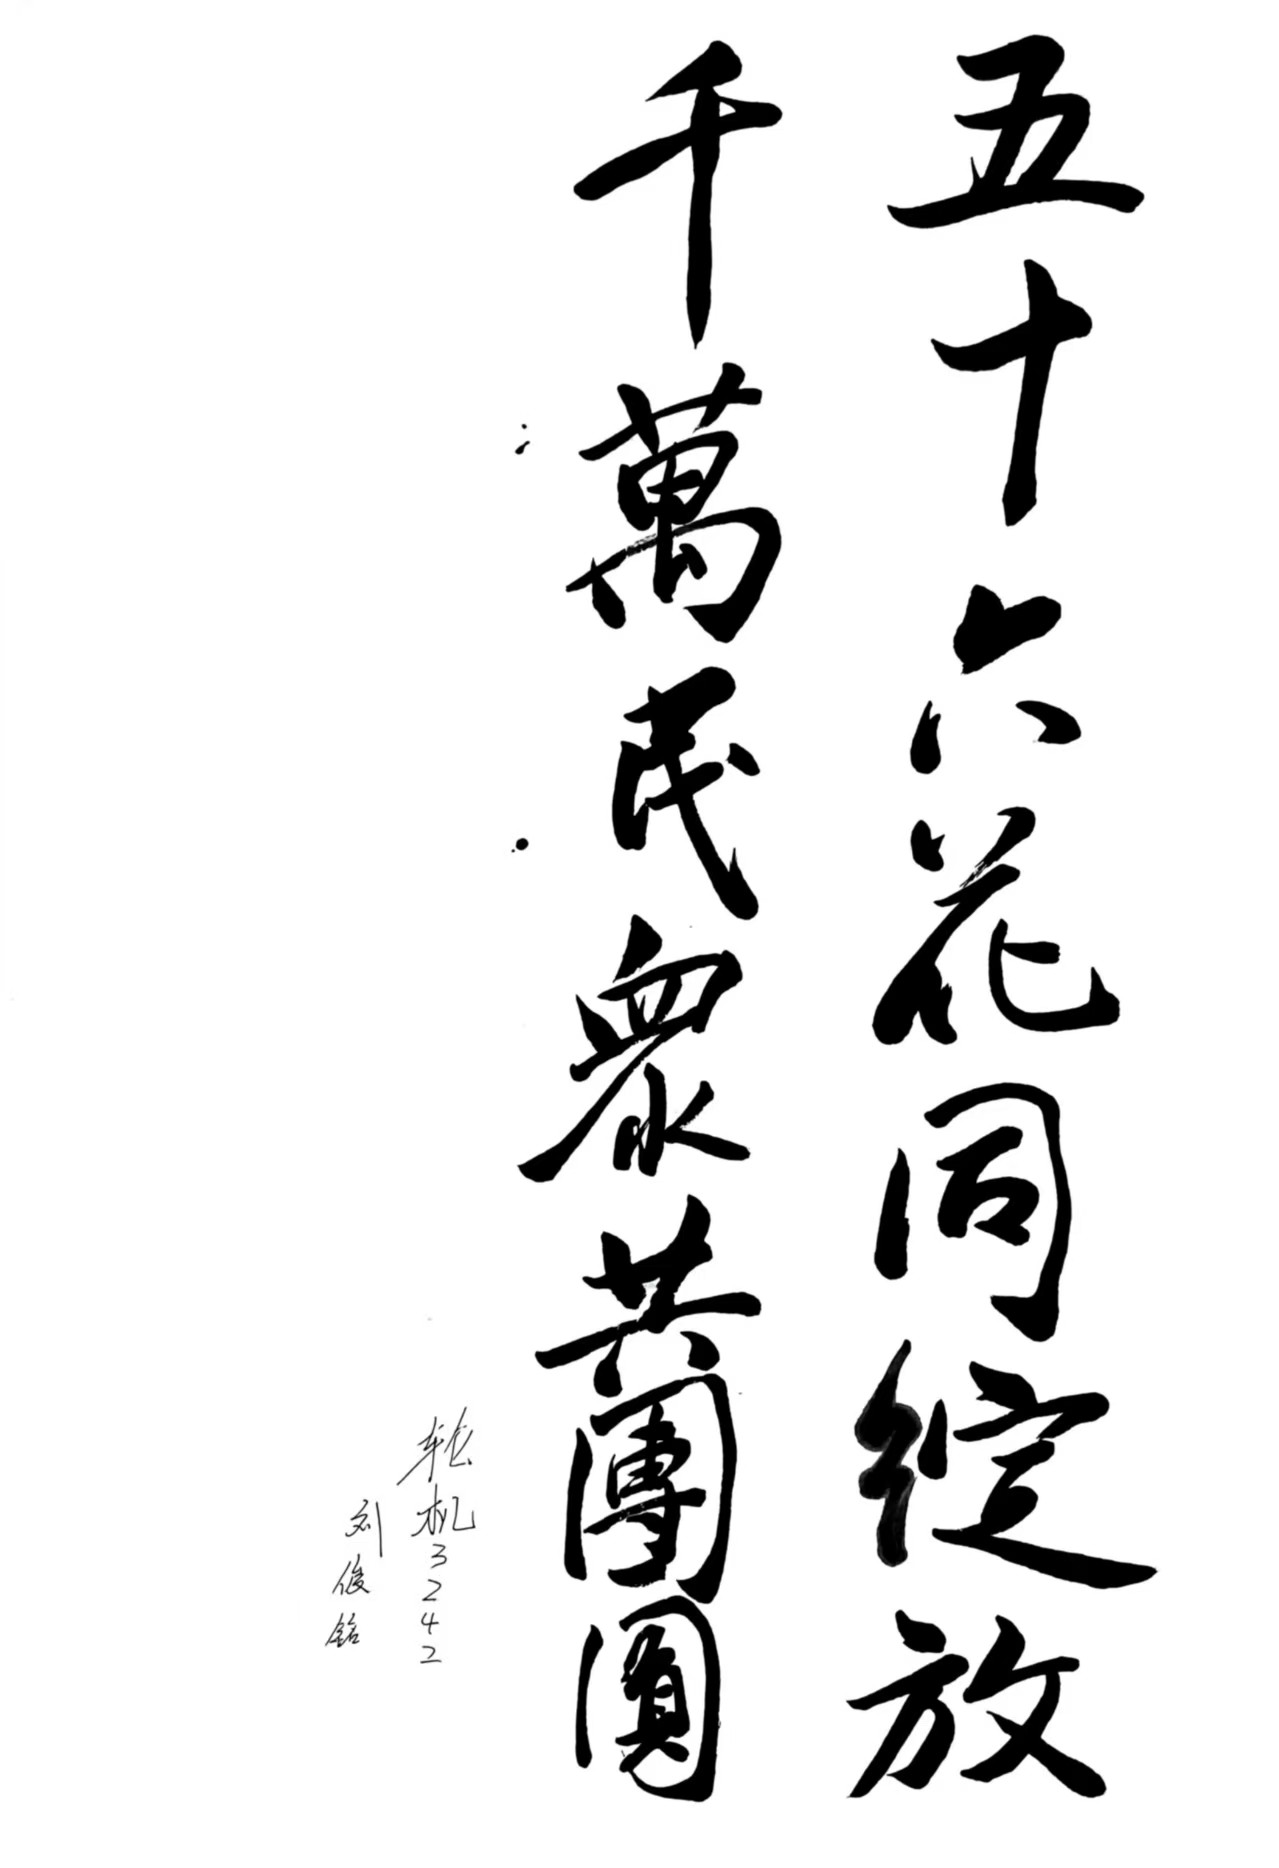 五十六花同綻放
千萬民衆共團圓
轮机3242
刘俊铭